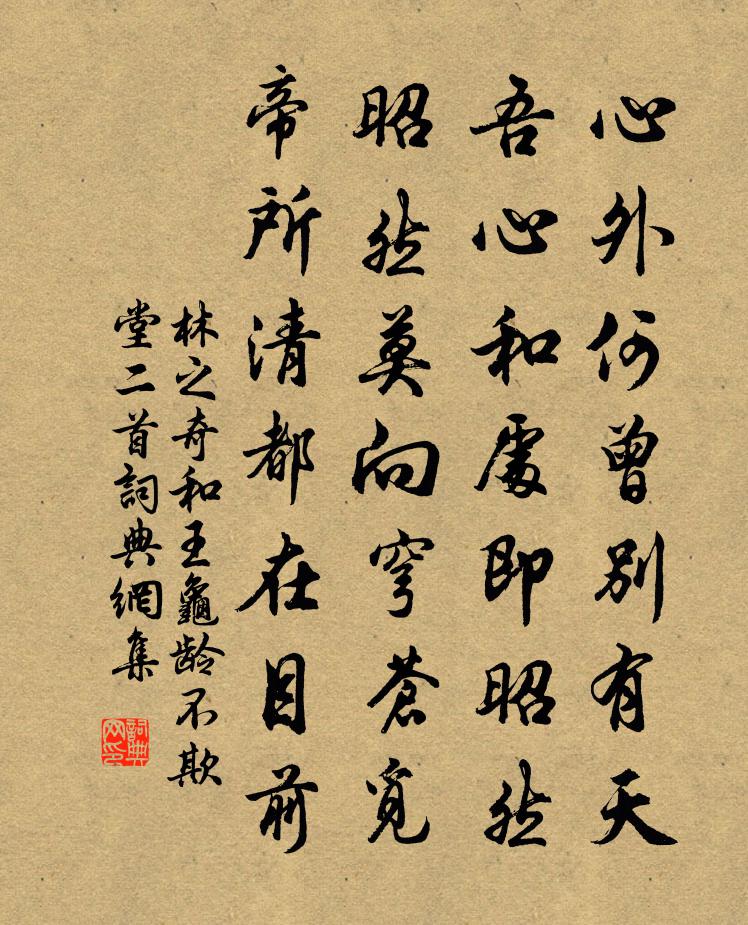 心外何曾別有天
吾心和處即昭然
昭然莫向穹蒼覓
帝所清都在目前
林之奇和王龜齡不欺
堂二首詞典網集
詞典網印